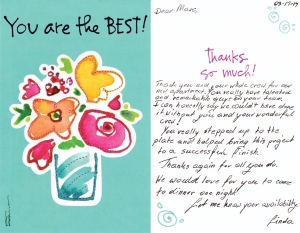 You are the BEST!
03-17-19
Dear Mase,
Thanks
so much!
Thank you and your whole crew for our
new apartment. You really have talented
and remarkable guys on your team.
I can honestly say we couldn't have done
it without you and your wonderful
crew!
You really stepped up to the
plate and helped bring this project
to a successful finish.
Thanks again for all you do.
We would love for you to come
to dinner one night.
Let me know your availability.
Linda